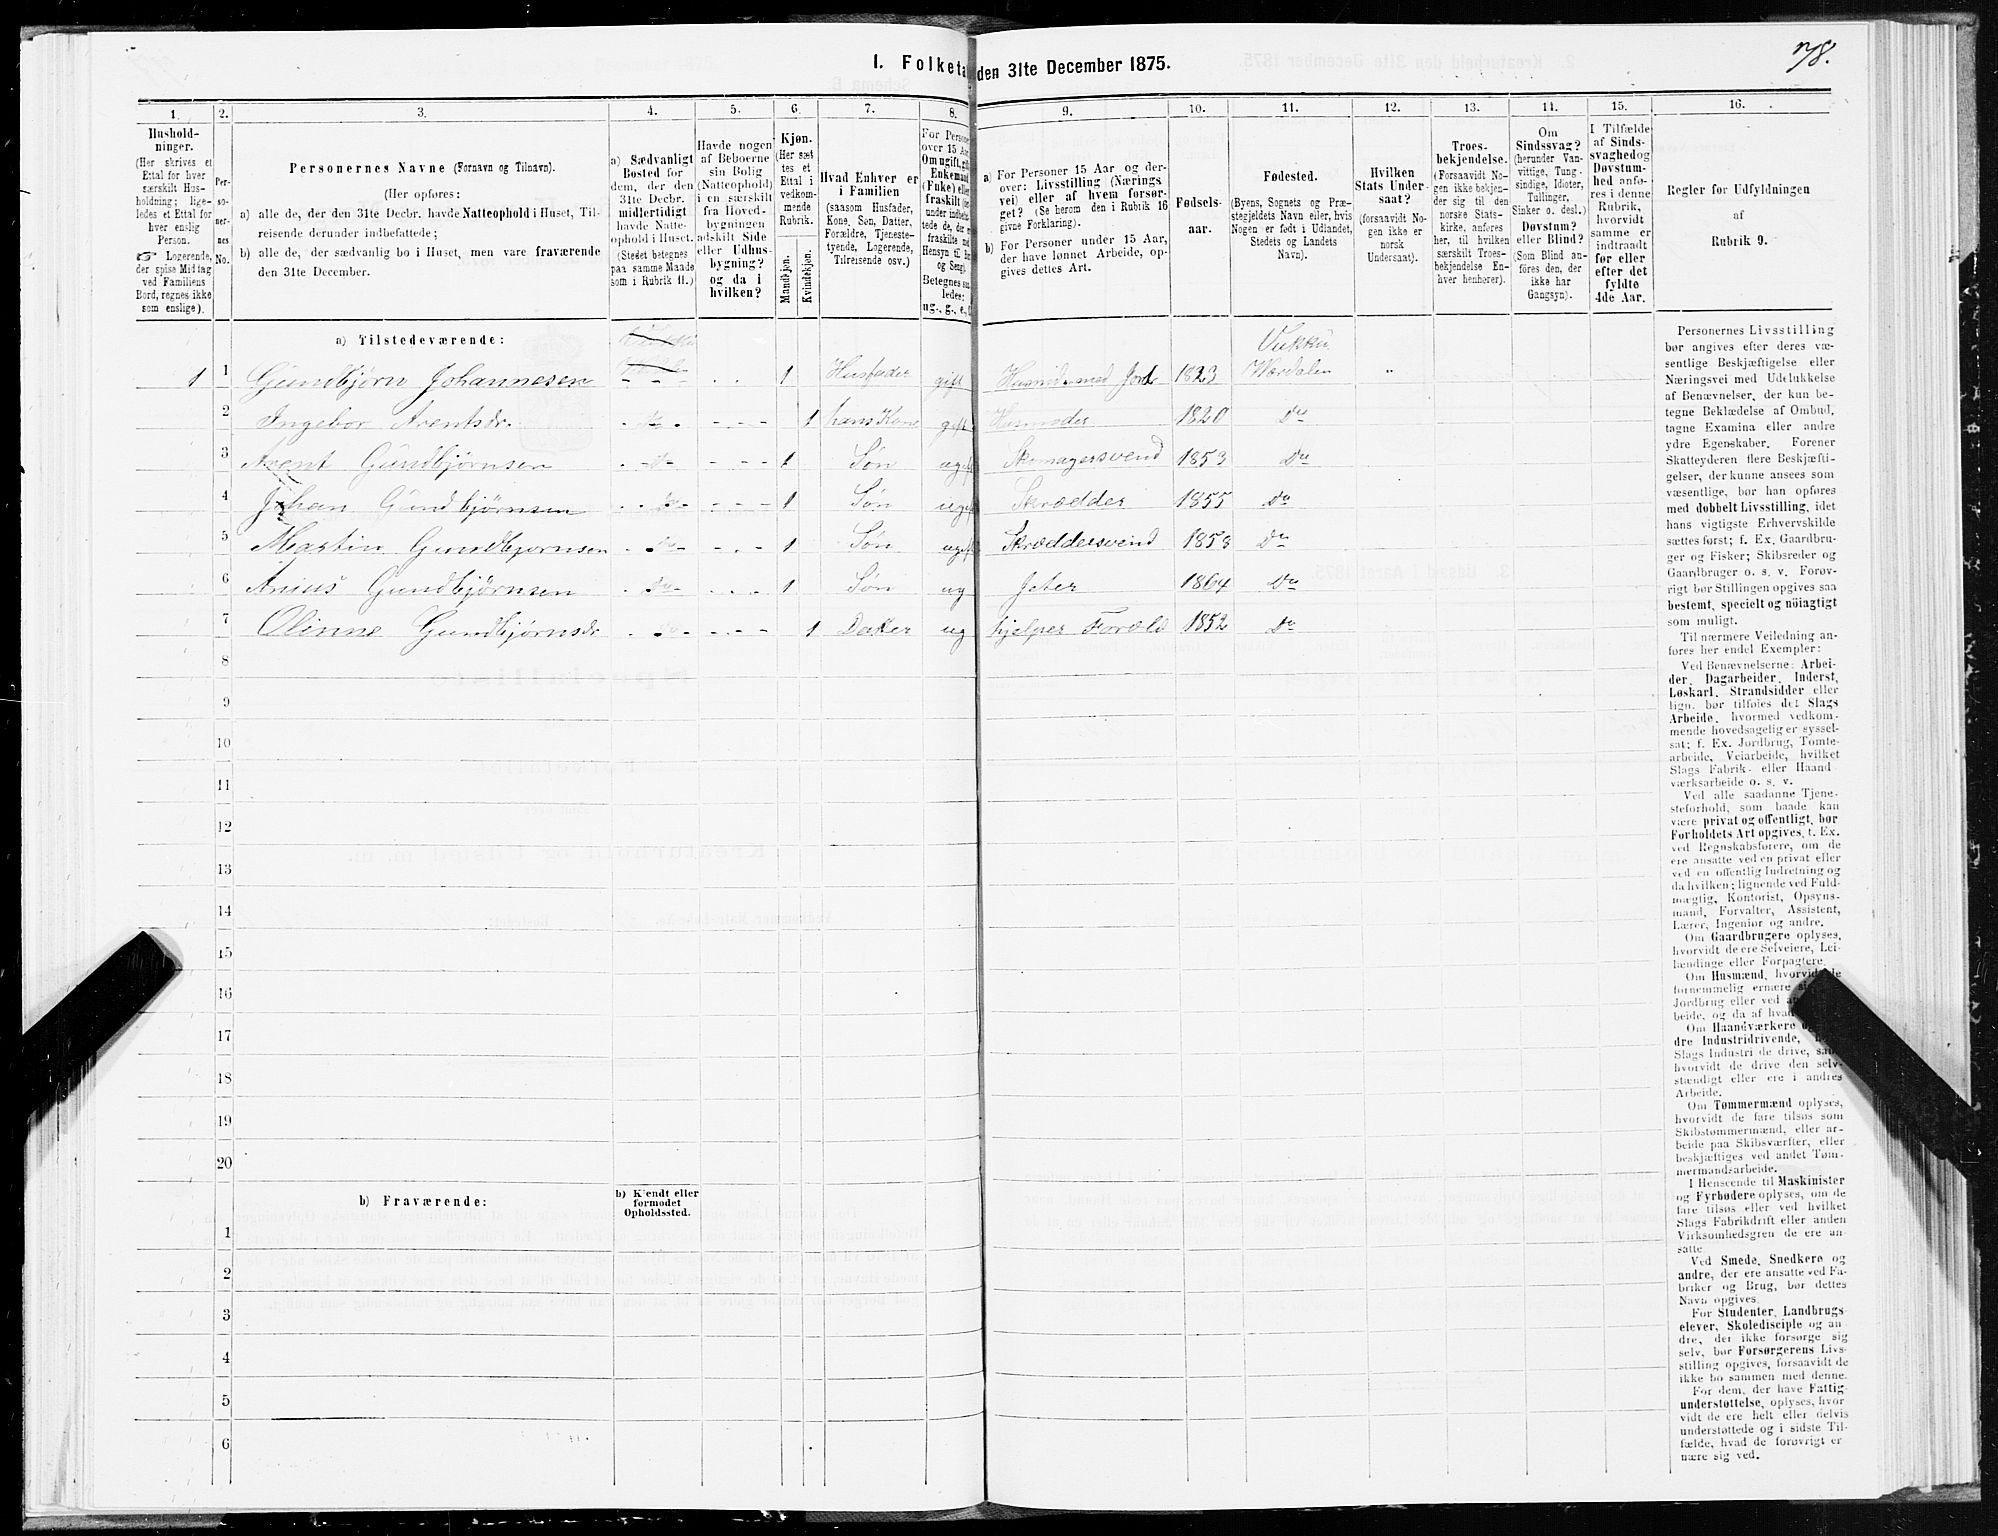 78.
I. Folketa den 31te December 1875.
1. 2. 3. 4. 5. 6. 7. 8. 9. 10. 11. 12. 13. 14. 15. 16.
Hushold-
ninger.
(Her skrives et
Ettal for hver
særskilt Hus-
holdning; lige-
ledes et Ettal for
hver enslig
Person.
Logerende,
der spise Middag
ved Familiens
Bord, regnes ikke
som enslige).
Per-
so-
ner-
nes
No.
Personernes Navne (Fornavn og Tilnavn).
(Her opføres:
a) alle de, der den 31te Decbr. havde Natteophold i Huset, Til-
reisende derunder indbefattede;
b) alle de, der sædvanlig bo i Huset, men vare fraværende
den 31te December.
a) Sædvanligt
Bosted for
dem, der den
31te Decbr.
midlertidigt
havde Natte-
ophold i Huset.
(Stedet betegnes
paa samme Maade
som i Rubrik 11.)
Havde nogen
af Beboerne
sin Bolig
(Natteophold)
i en særskilt
fra Hoved-
bygningen
adskilt Side
eller Udhus-
bygning?
og da i
hvilken?
Kjøn.
(Her sæt-
tes et
Ettal i
vedkom-
mende
Rubrik.
Mandkjøn.
Kvindekjøn.
Hvad Enhver er
i Familien
(saasom Husfader,
Kone, Søn, Datter,
Forældre, Tjeneste-
tyende, Logerende,
Tilreisende osv.)
For Persone
over 15 Aar
Om ugift, gift
Enkemand
(Enke) eller
fraskilt
under indbefat-
tede de, der
fraskilte med
Hensyn til Bo
og Seng).
Betegnes saa-
ledes:
ug., g., e., f.
a) For Personer 15 Aar og der-
over: Livsstilling (Nærings
vei) eller af hvem forsør-
get? (Se herom den i Rubrik 16
givne Forklaring).
b) For Personer under 15 Aar,
der have lønnet Arbeide, op-
gives dettes Art.
Fødsels-
aar.
Fødested.
(Byens, Sognets og Præ-
stegjeldets Navn eller, hvis
Nogen er født i Udlandet,
Stedets og Landets
Navn).
Hvilken
Stats Under-
saat?
(forsaavidt No-
gen ikke er
norsk
Undersaat).
Troes-
bekjendelse.
(Forsaavidt No-
gen ikke bekjen-
der sig til den
norske Stats-
kirke, anføres
her, til hvilken
særskilt Troes-
bekjendelse En-
hver henhører).
Om
Sindssvag?
(herunder Van-
vittige, Tung-
sindige, Idioter,
Tullinger,
Sinker o. desl.)
Døvstum?
eller Blind?
(Som Blind an-
føres den, der
ikke har
Gangsyn).
I Tilfælde
af Sinds-
svaghed og
Døvstum-
hed anfø-
res i denne
Rubrik,
hvorvidt
samme er
indtraadt
før eller
efter det
fyldte
4de Aar.
Regler før Udfyldningen
af
Rubrik 9.
a) Tilstedeværende:
1 1 Gundbjørn Johannesen 1 Husfader gift Husmid. med Jord 1823 Vukku Værdalen "
2 Ingebor Arentsdr. Do 1 hans Kone gift Husmoder 1820 Do
3 Arent Gundbjørnsen Do 1 Søn ugift Skomagersvend 1853 Do
4 Johan Gundbjørnsen Do 1 Søn ugift Skrædder 1855 Do
5 Martin Gundbjørnsen Do 1 Søn ugift Skræddersvend 1858 Do
6 Anius Gundbjørnsen Do 1 Søn ug Jeter 1864 Do
7 Olinne Gundbjørnsdr Do 1 Datter ug hjelper Foræld 1852 Do
8
9
10
11
12
13
14
15
16
17
18
19
20
b) Fraværende:
b) Kjendt eller
formodet
Opholdssted.
1
2
3
4
5
6
Personernes Livsstilling
bør angives efter deres væ-
sentlige Beskjæftigelse eller
Næringsvei med Udelukkelse
af Benævnelser, der kun be-
tegne Beklædelse af Ombud,
tagne Examina eller andre
ydre Egenskaber. Forener
Skatteyderen flere Beskjæfti-
gelser, der kunne ansees som
væsentlige, bør han opføres
med dobbelt Livsstilling, idet
hans vigtigste Erhvervskilde
sættes først; f. Ex. Gaardbru-
ger og Fisker; Skibsreder og
Gaardbruger o. s. v. Forøv-
rigt bør Stillingen opgives saa
bestemt, specielt og nöiagtigt
som muligt.
Til nærmere Veiledning an-
føres her endel Exempler:
Ved Benævnelserne: Arbei-
der, Dagarbeider, Inderst,
Løskarl, Strandsidder eller
lign. bør tilføies det Slags
Arbeide, hvormed vedkom-
mende hovedsagelig er syssel-
sat; f. Ex. Jordbrug, Tomte-
arbeide, Veiarbeide, hvilket
Slags Fabrik- eller Haand
værksarbeide o. s. v.
Ved alle saadanne Tjene-
steforhold, som baade kan
være privat og offentligt, bør
Forholdets Art opgives, t. Ex.
ved Regnskabsførere, om de
ere ansatte ved en privat eller
ved en offentlig Indretning og
da hvilken; lignende ved Fuld-
mægtig, Kontorist, Opsyns-
mand, Forvalter, Assistent,
Lærer, Ingeniør og andre.
Om Gaardbrugere oplyses,
hvorvidt de ere Selveiere, Lei-
lændinge eller Forpagtere.
Om Husmænd, hvorvidt de
fornemmelig ernære si
Jordbrug eller ved an
beide, og da af hvad
Om Haandværkere o
dre Industridrivende,
Slags Industri de drive, sam
hvorvidt de drive den selv-
stændigt eller ere i andres
Arbeide.
Om Tømmermænd oplyses,
hvorvidt de fare tilsøs som
Skibstømmermænd, eller ar-
beide paa Skibsværfter, eller
beskjæftiges ved andet Tøm-
mermandsarbeide.
I Henseende til Maskinister
og Fyrbødere oplyses, om de
fare tilsøs eller ved hvilket
Slags Fabrikdrift eller anden
Virksomhedsgren de ere an-
satte.
Ved Smede, Snedkere og
andre, der ere ansatte ved Fa-
briker og Brug, bør dettes
Navn opgives.
For Studenter, Landbrugs
elever, Skoledisciple og an-
dre, der ikke forsørge sig
selv, bør Forsørgerens Livs-
stilling opgives, forsaavidt de
ikke bo sammen med denne.
For dem, der have Fattig-
understøttelse, oplyses, hvor
vidt de ere helt eller delvis
understøttede og i sidste Til-
fælde, hvad de forøvrigt er
nære sig ved.